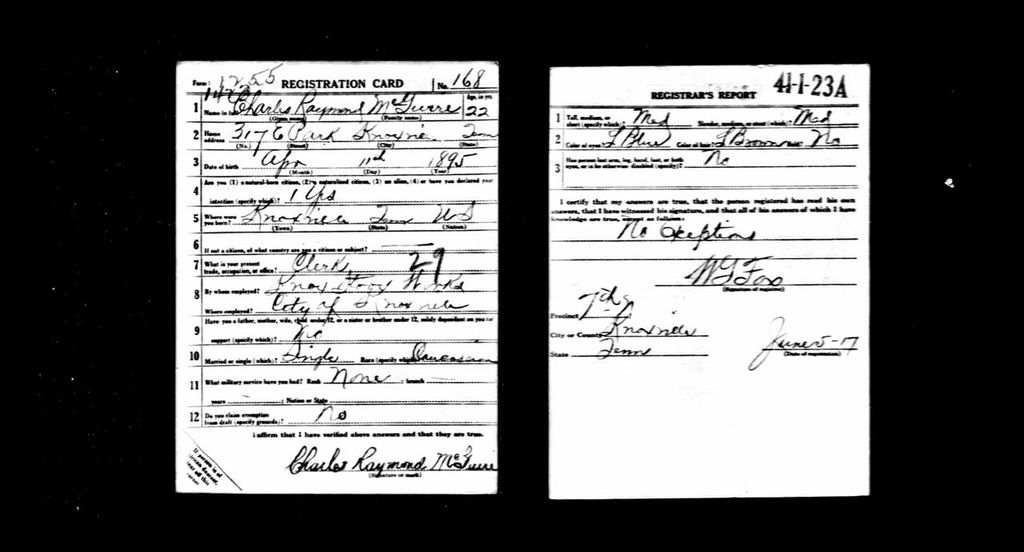 Form 1 1255 REGISTRATION CARD No. 168
1 Name in full Charles Raymond McGuire Age, in yrs. 22
(Given name) (Family name)
2 Home address 317 E Park Knoxville Tenn
(No.) (Street) (City) (State)
3 Date of birth Apr 11th 1895
(Month) (Day) (Year)
4 Are you (1) a natural-born citizen, (2) a naturalized citizen, (3) an alien, (4) or have you declared your
intention (specify which)? 1 Yes
5 Where were you born? Knoxville Tenn US
(Town) (State) (Nation)
6 If not a citizen, of what country are you a citizen or subject?
7 What is your present trade, occupation, or office? Clerk 29
8 By whom employed? Knox Stove Works
Where employed? City of Knoxville
9 Have you a father, mother, wife, child under 12, or a sister or brother under 12, solely dependent on you for
support (specify which)? No
10 Married or single (which)? Single Race (specify which)? Caucasian
11 What military service have you had? Rank None ; branch
years ; Nation or State
12 Do you claim exemption from draft (specify grounds)? No
I affirm that I have verified above answers and that they are true.
Charles Raymond McGuire
(Signature or mark)
41-1-23A
REGISTRAR'S REPORT
1 Tall, medium, or short (specify which)? Med Slender, medium, or stout (which)? Med
2 Color of eyes? L Blue Color of hair? L Brown Bald? No
3 Has person lost arm, leg, hand, foot, or both
eyes, or is he otherwise disabled (specify)? No
I certify that my answers are true, that the person registered has read his own
answers, that I have witnessed his signature, and that all of his answers of which I have
knowledge are true, except as follows:
No Exceptions
WG Fox
(Signature of registrar)
Precinct 7th
City or County Knoxville
State Tenn
June 5-17
(Date of registration)